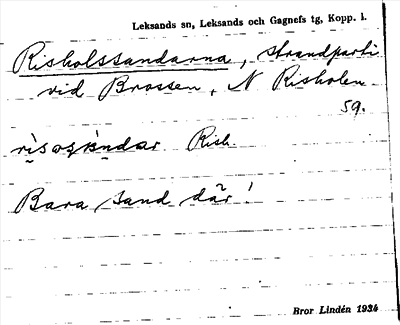 Leksands sn, Leksands och Gagnefs tg, Kopp. l.
Risholssandarna, strandparti
vid Brossen, N Risholen
59.
Rish.
Bara sand där!
Bror Lindén 1934